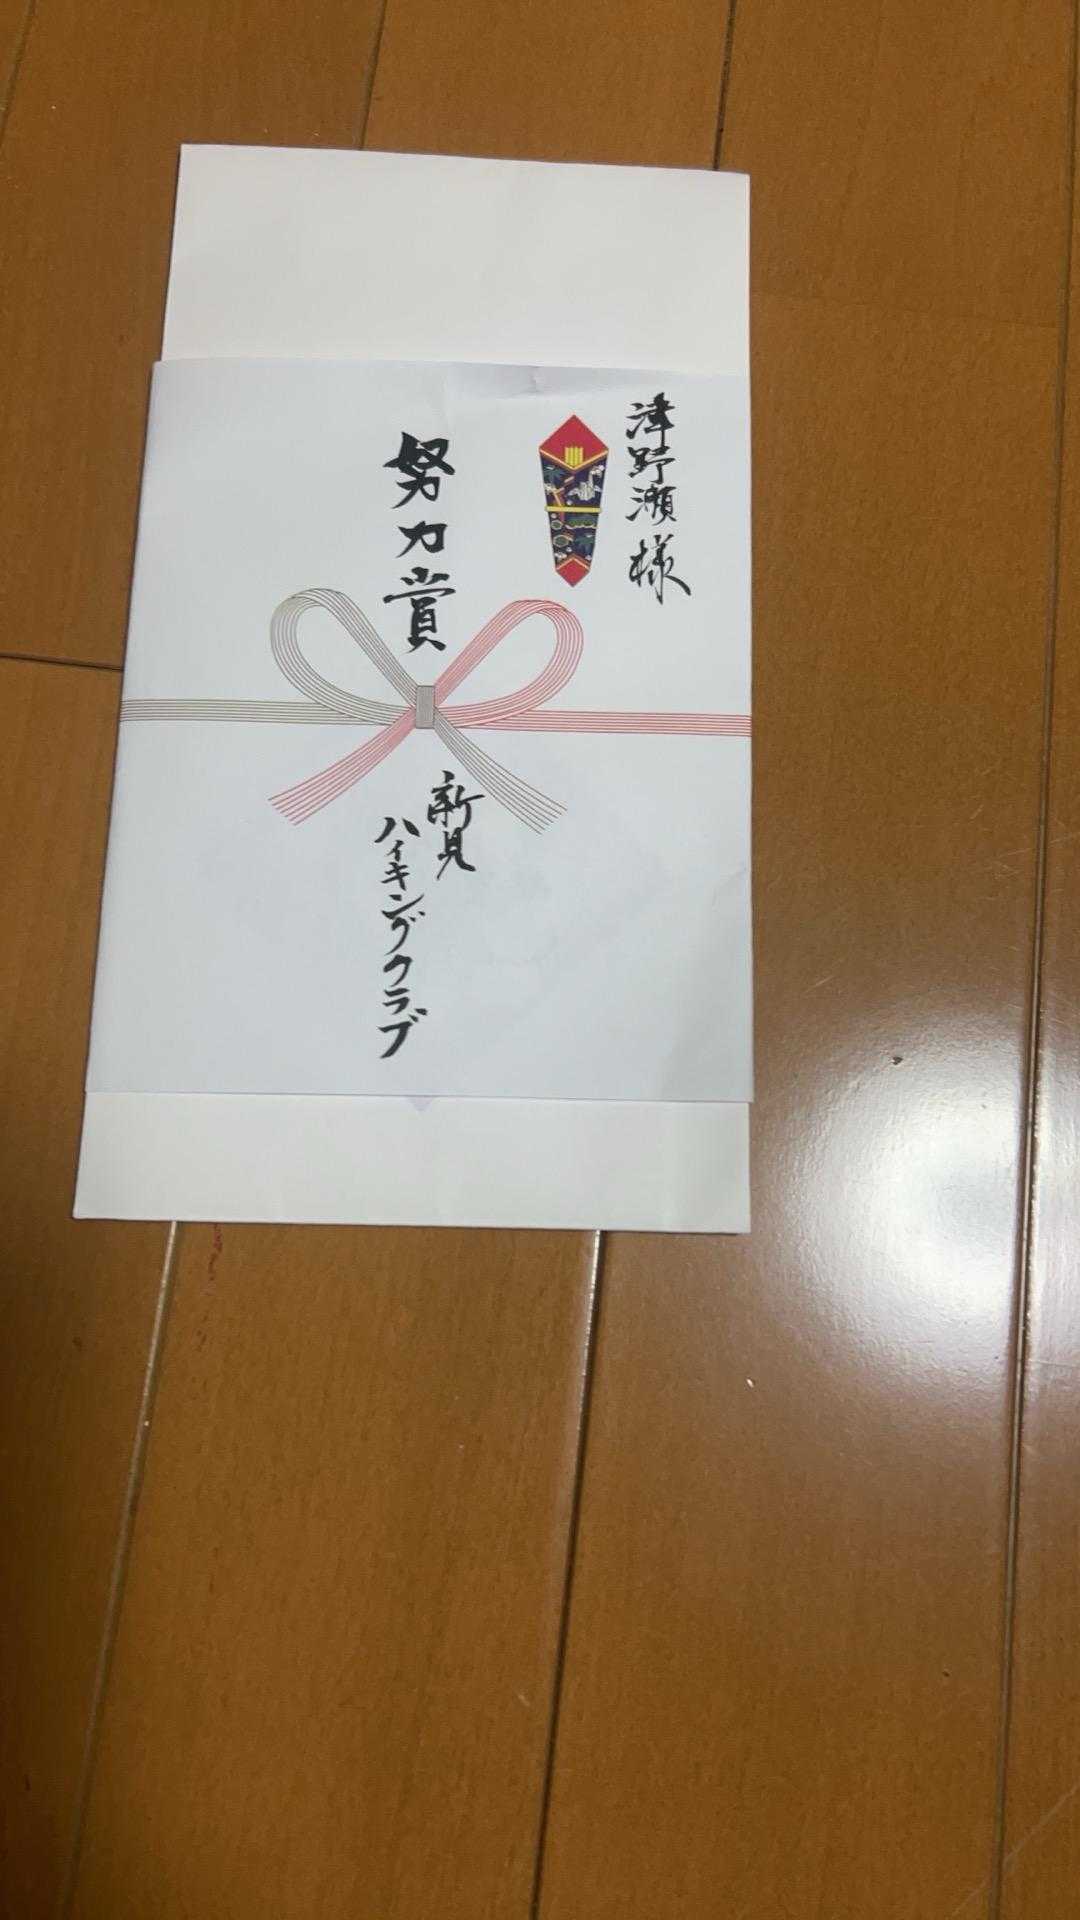 津野瀬様
努力賞
新見
ハイキングクラブ